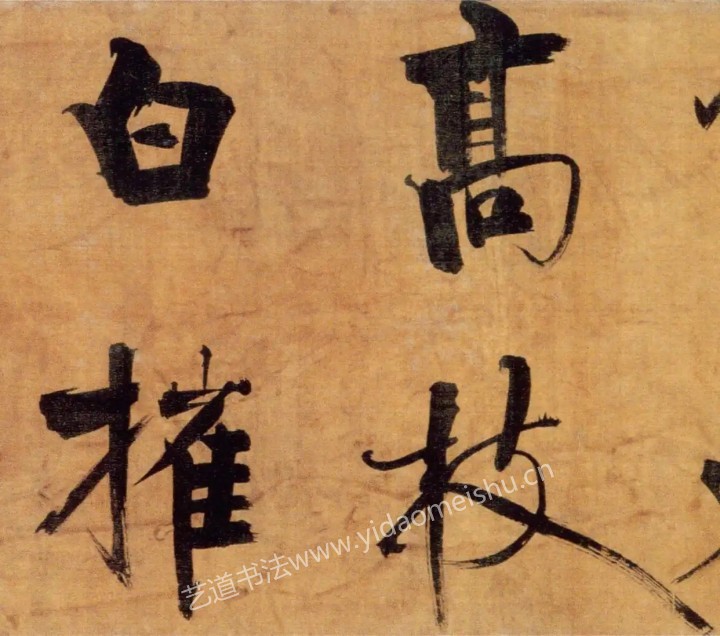 高枝
白摧
艺道书法www.yidaomeishu.cn